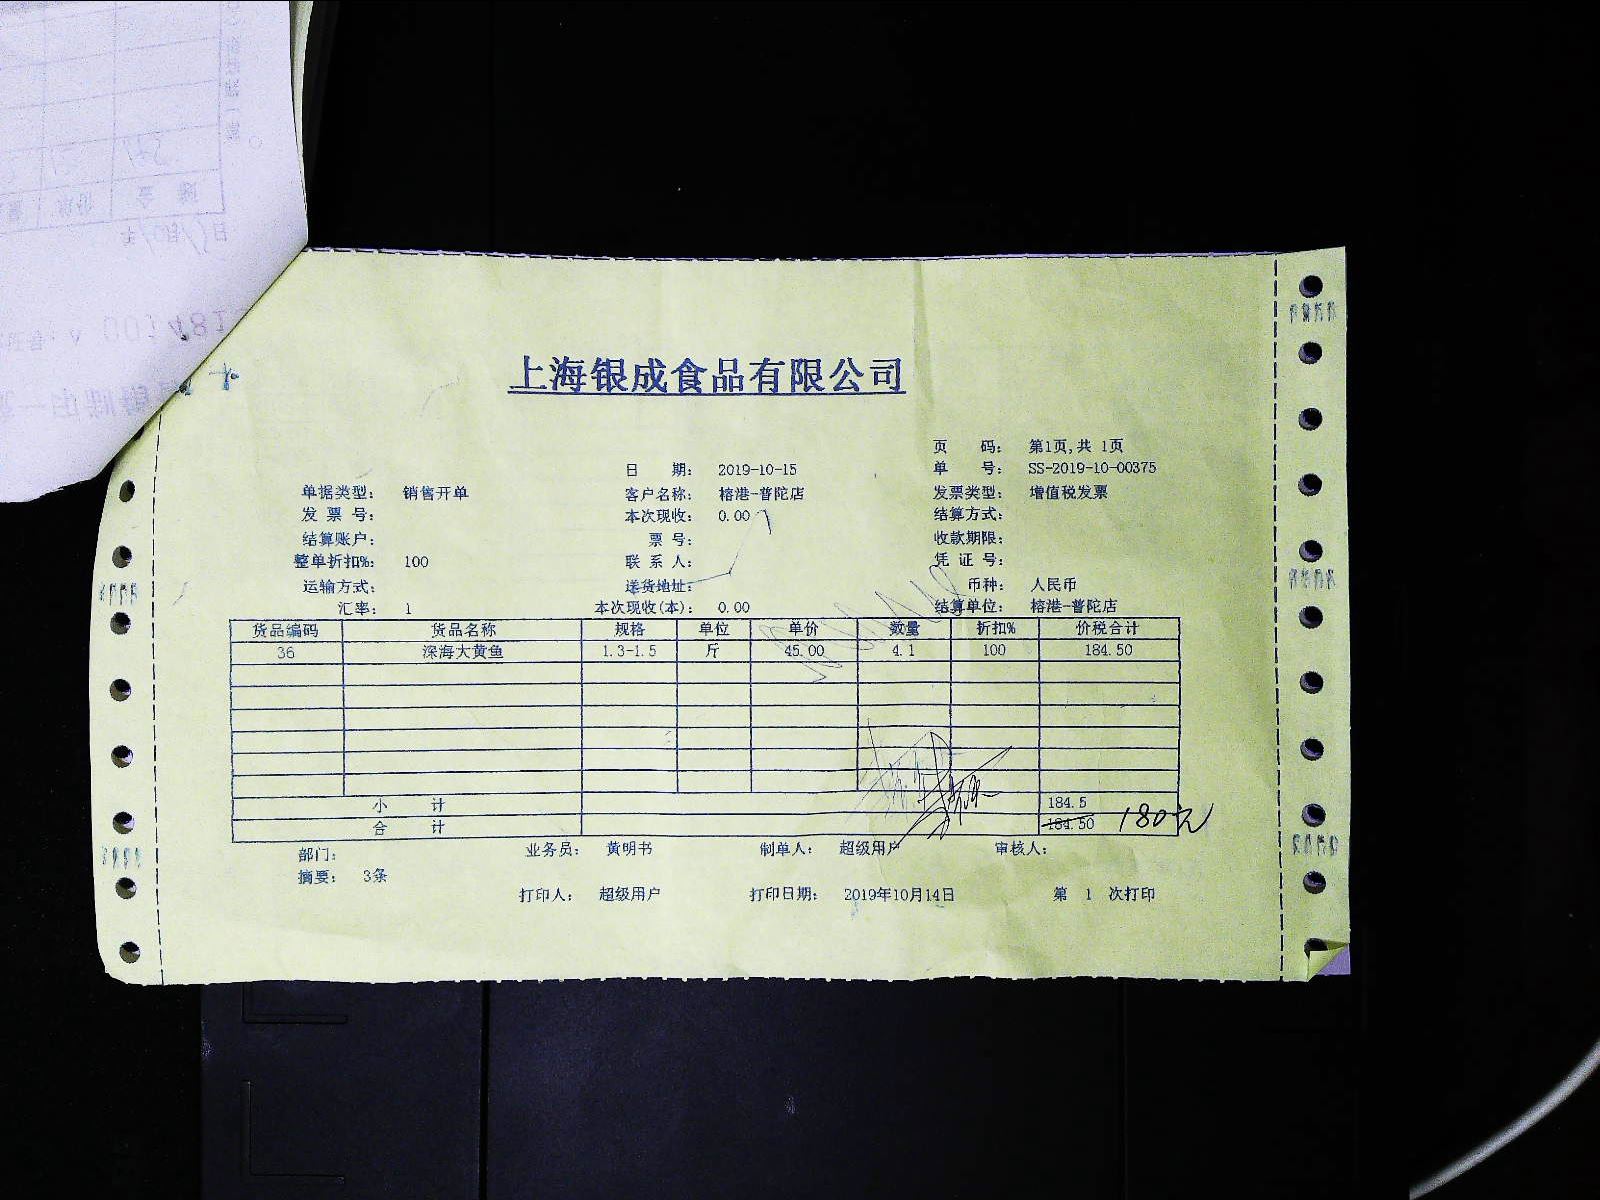 上海银成食品有限公司
页 码: 第1页,共 1页
日 期: 2019-10-15 单 号: SS-2019-10-00375
单据类型: 销售开单 客户名称: 榕港-普陀店 发票类型: 增值税发票
发 票 号: 本次现收: 0.00 结算方式:
结算账户: 票 号: 收款期限:
整单折扣%: 100 联 系 人: 凭 证 号:
运输方式: 送货地址: 币种: 人民币
汇率: 1 本次现收(本): 0.00 结算单位: 榕港-普陀店
货品编码 货品名称 规格 单位 单价 数量 折扣% 价税合计
36 深海大黄鱼 1.3-1.5 斤 45.00 4.1 100 184.50
小 计 184.5
合 计 184.50 180元
部门: 业务员: 黄明书 制单人: 超级用户 审核人:
摘要: 3条
打印人: 超级用户 打印日期: 2019年10月14日 第 1 次打印